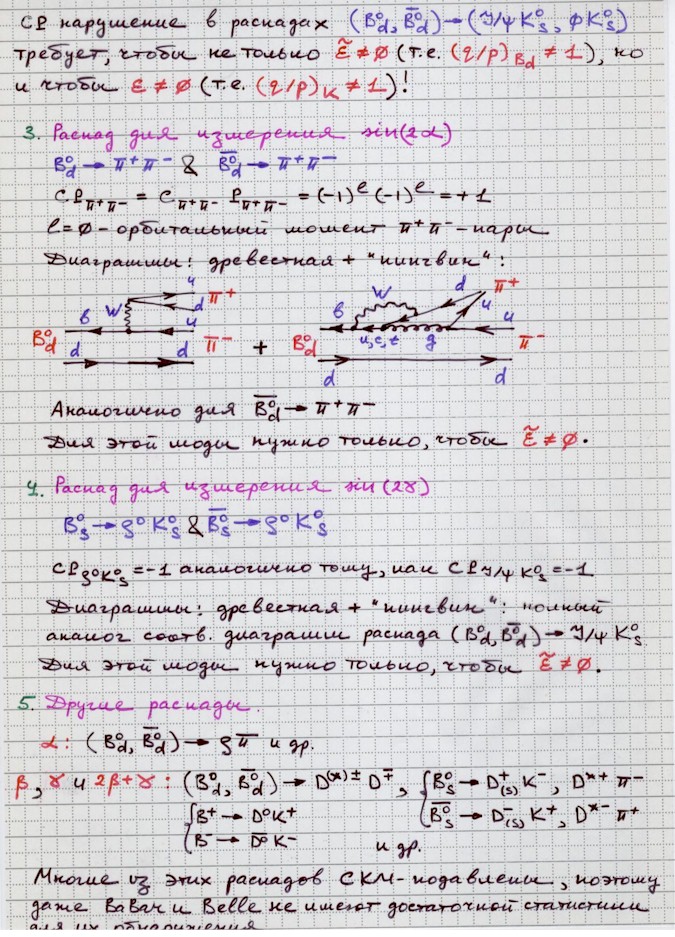 CP нарушение в распадах (B⁰d, B̄⁰d) → (J/ψ K⁰s, φK⁰s)
требует, чтобы не только ε̃ ≠ 0 (т.е. (q/p)Bd ≠ 1), но
и чтобы ε ≠ 0 (т.е. (q/p)K ≠ 1)!
3. Распад для измерения sin(2α)
B⁰d → π⁺π⁻ & B̄⁰d → π⁺π⁻
CPπ⁺π⁻ = Cπ⁺π⁻ Pπ⁺π⁻ = (-1)^ℓ (-1)^ℓ = +1
ℓ = 0 - орбитальный момент π⁺π⁻-пары
Диаграммы: древестная + "пингвин":
u d π⁺
b W u
B⁰d π⁻
d d
+
d π⁺
b W u u
B⁰d u, c, t g π⁻
d d
Аналогично для B̄⁰d → π⁺π⁻
Для этой моды нужно только, чтобы ε̃ ≠ 0.
4. Распад для измерения sin(2γ)
B⁰s → ρ⁰K⁰s & B̄⁰s → ρ⁰K⁰s
CPρ⁰K⁰s = -1 аналогично тому, как CP J/ψ K⁰s = -1
Диаграммы: древестная + "пингвин": полный
аналог соотв. диаграмм распада (B⁰d, B̄⁰d) → J/ψ K⁰s.
Для этой моды нужно только, чтобы ε̃ ≠ 0.
5. Другие распады.
α: (B⁰d, B̄⁰d) → ρπ и др.
β, γ и 2β+γ: (B⁰d, B̄⁰d) → D⁽*⁾± D∓, { B⁰s → D⁺(s) K⁻, D*⁺ π⁻
{ B⁺ → D⁰K⁺ B̄⁰s → D⁻(s) K⁺, D*⁻ π⁺
B⁻ → D̄⁰K⁻ и др.
Многие из этих распадов СКМ-подавлены, поэтому
даже BaBar и Belle не имеют достаточной статистики
для их обнаружения